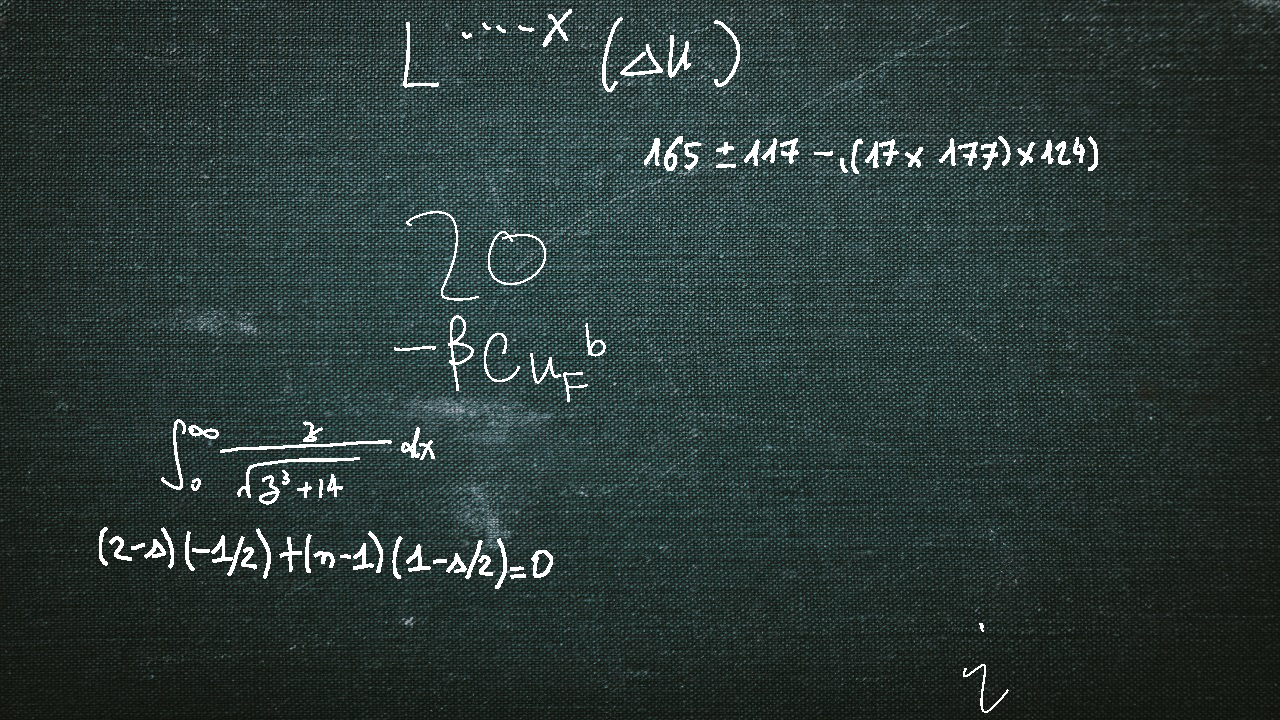 L ⋯⋅-x (Δu)
165 ± 117 - ((17 × 177) × 124)
20
-βCu_F^b
∫_0^∞ z / √(z³+14) dx
(2-s)(-1/2)+(n-1)(1-s/2)=0